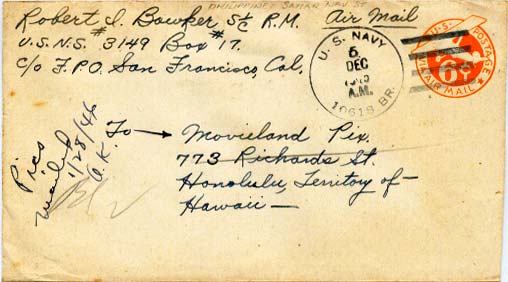 PHILIPPINES SAMAR NAV ST
Robert I. Bowker S1/c R.M.
Air Mail
U.S.N.S. # 3149 Box # 17.
c/o F.P.O. San Francisco, Cal.
U. S. NAVY
5
DEC
A.M.
10618 BR.
U.S. POSTAGE
6¢
VIA AIR MAIL
To → Movieland Pix.
773 Richards St.
Honolulu, Territory of—
Hawaii —
Pics
mailed
1/28/46
O.K.